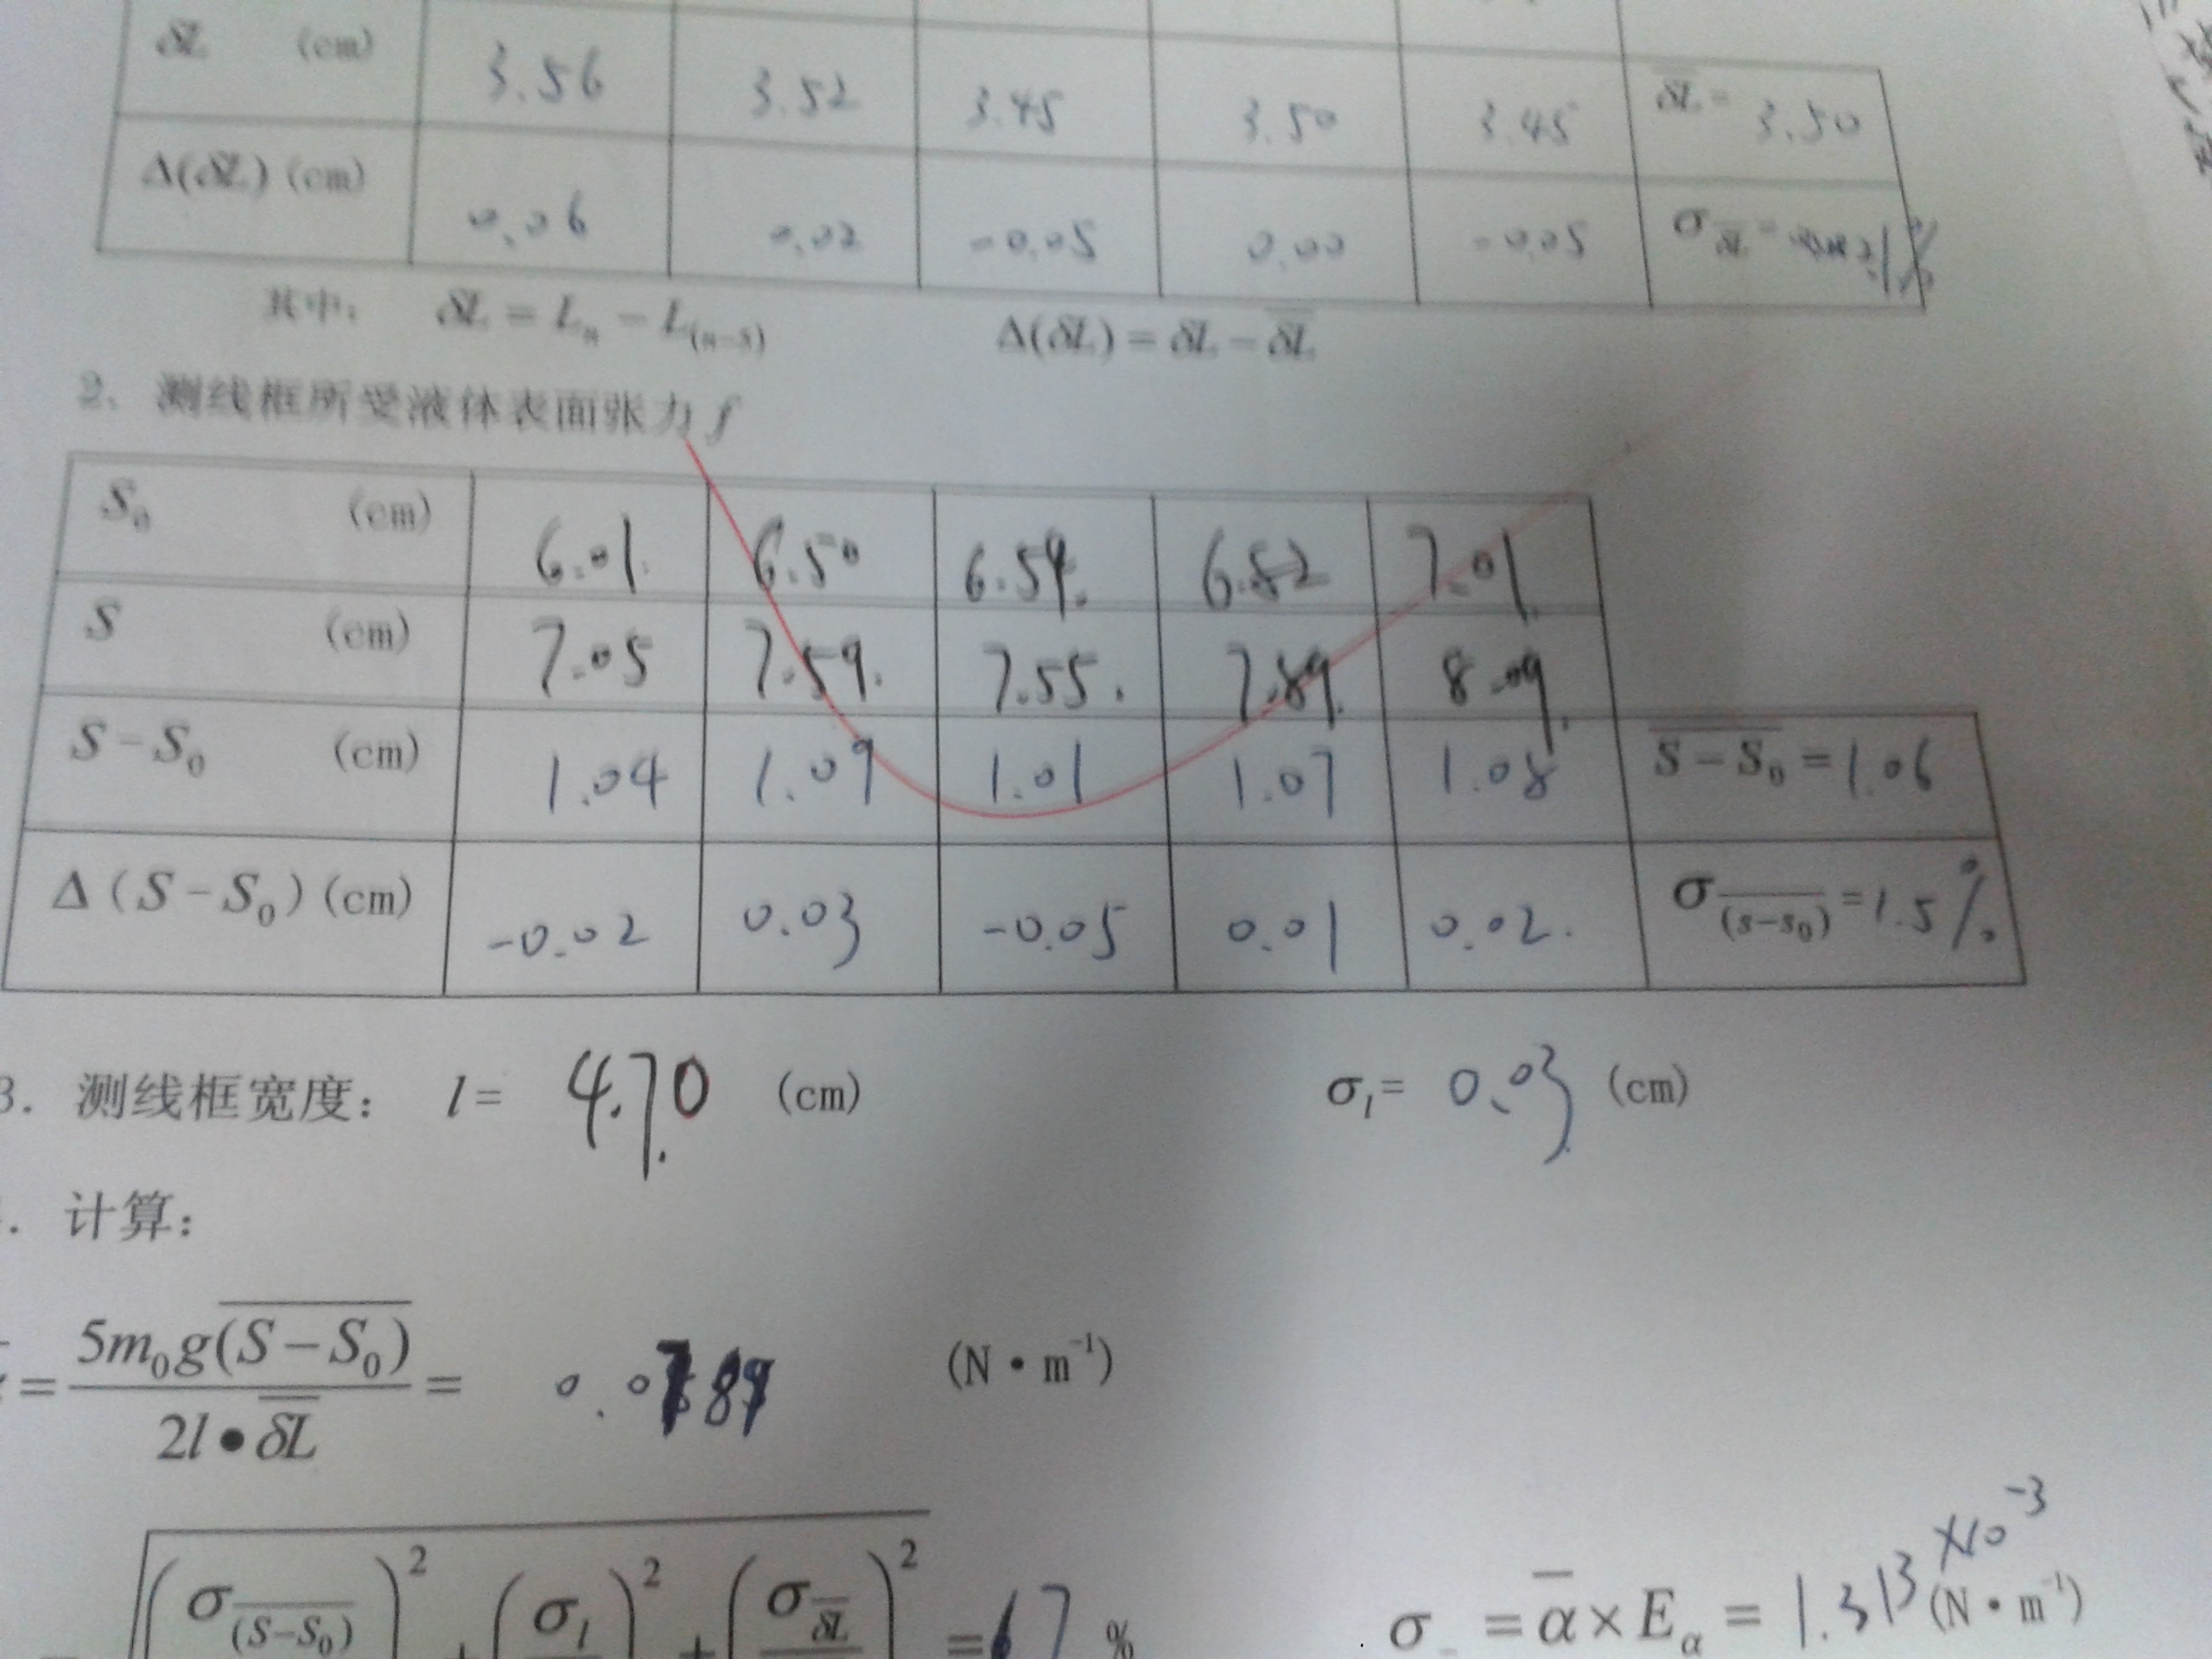 δL (cm) 3.56 3.52 3.45 3.50 3.45 δL̅ = 3.50
Δ(δL) (cm) 0.06 0.02 -0.05 0.00 -0.05 σ_δL̅ =
其中: δL = Lₙ - L₍ₙ₋₅₎ Δ(δL) = δL - δL̅
2、测线框所受液体表面张力 f
S₀ (cm) 6.01 6.50 6.54. 6.82 7.01
S (cm) 7.05 7.59. 7.55. 7.89. 8.09.
S-S₀ (cm) 1.04 1.09 1.01 1.07 1.08 \overline{S-S₀} = 1.06
Δ(S-S₀) (cm) -0.02 0.03 -0.05 0.01 0.02. σ_{\overline{(s-s₀)}} = 1.5%
3. 测线框宽度: l = 4.70 (cm) σₗ = 0.03 (cm)
. 计算:
= \frac{5m₀g\overline{(S-S₀)}}{2l•\overline{δL}} = (N·m⁻¹)
\sqrt{(σ_{\overline{(S-S₀)}})² + (σₗ)² + (σ_{\overline{δL}})²} = %
σ = \overline{α} × E_α = 1.313×10⁻³ (N·m⁻¹)